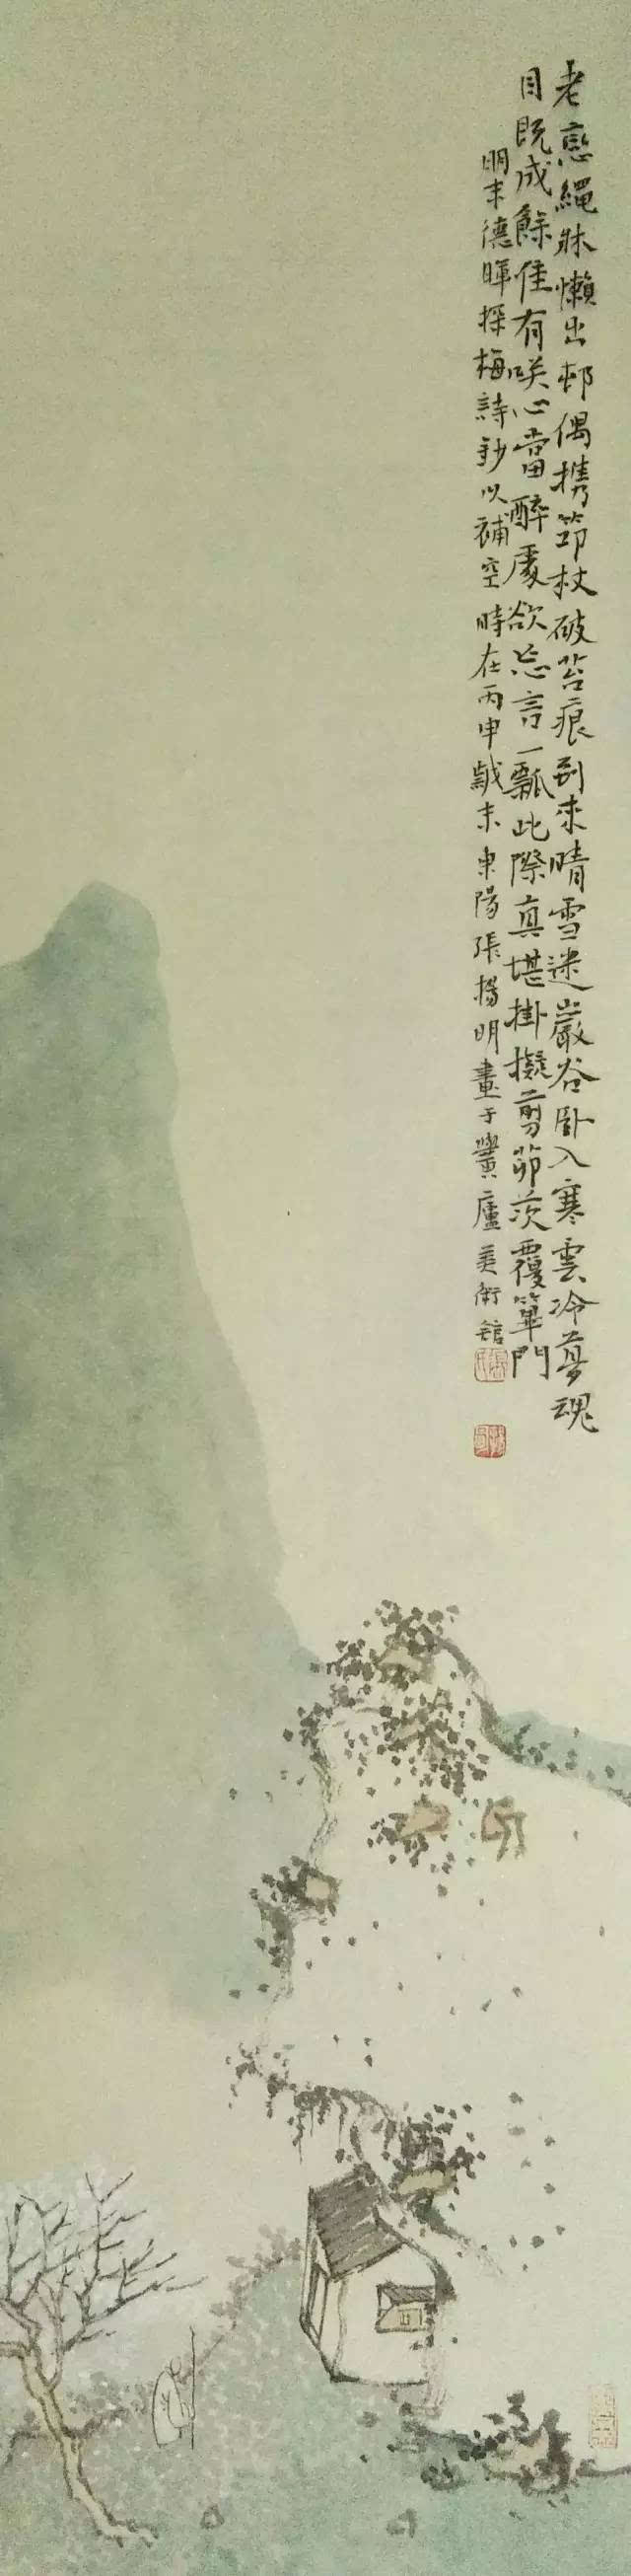 老戀繩牀懶出邨偶攜筇杖破苔痕到來晴雪迷巖谷卧入寒雲冷夢魂
目既成餘佳有咲心當醉處欲忘言一瓢此際真堪掛擬剪茆茨覆篳門
明末德暉探梅詩鈔以補空時在丙申歲末東陽張揚明畫于黌廬美術館